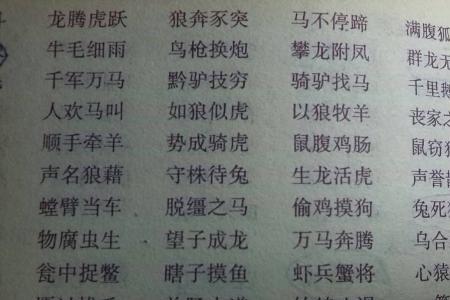 龙腾虎跃 狼奔豕突 马不停蹄 满腹狐
牛毛细雨 鸟枪换炮 攀龙附凤 群龙无
千军万马 黔驴技穷 骑驴找马 千里鹅
人欢马叫 如狼似虎 以狼牧羊 丧家之
顺手牵羊 势成骑虎 鼠腹鸡肠 鼠窃狗
声名狼藉 守株待兔 生龙活虎 声誉
螳臂当车 脱缰之马 偷鸡摸狗 兔死
物腐虫生 望子成龙 万马奔腾 乌合
瓮中捉鳖 瞎子摸鱼 虾兵蟹将 心猿